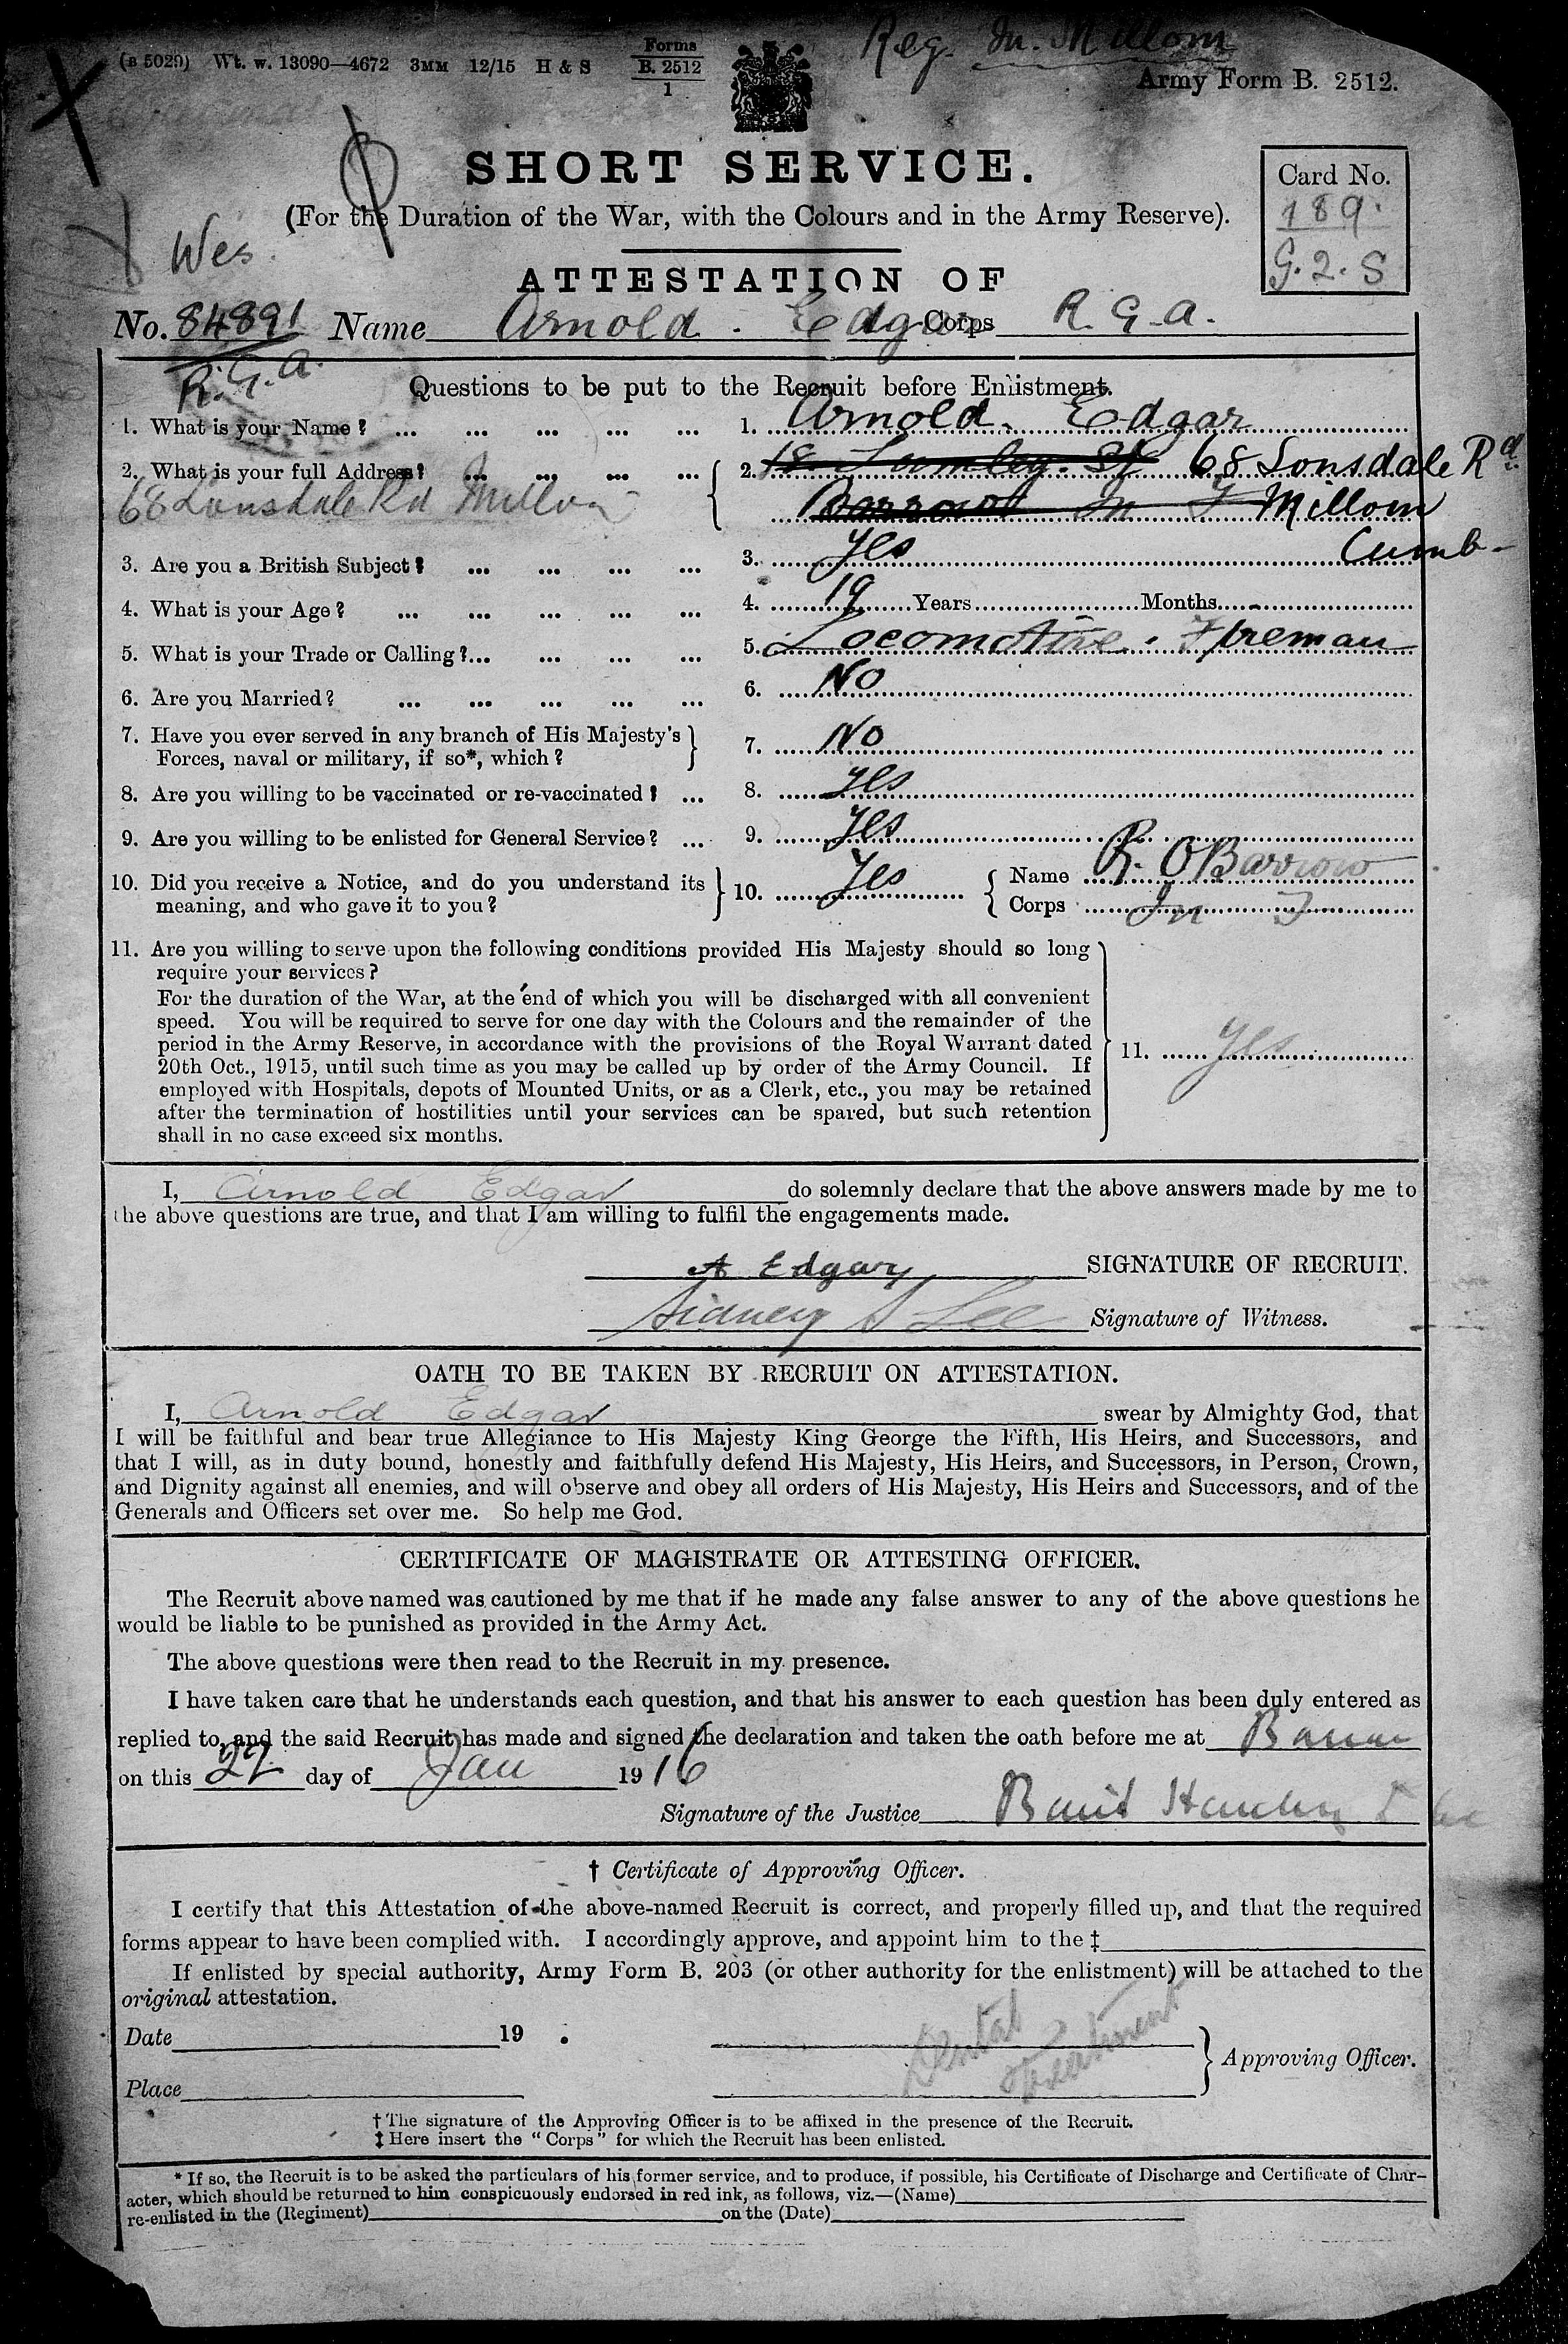 Reg. In. Millom
(B 5029) Wt. w. 13090—4672 3MM 12/15 H & S
Forms
B. 2512
1
Army Form B. 2512.
SHORT SERVICE.
(For the Duration of the War, with the Colours and in the Army Reserve).
Card No.
189.
G.2.S
Wes.
ATTESTATION OF
No. 84891 Name Arnold. Edgar Corps R.G.A.
R.G.A.
Questions to be put to the Recruit before Enlistment.
1. What is your Name? ... ... ... ... ... 1. Arnold. Edgar
2. What is your full Address? ... ... ... 2. 18 Lumley. St 68 Lonsdale Rd.
68 Lonsdale Rd Millom Barrow In F Millom
Cumb-
3. Are you a British Subject? ... ... ... ... 3. Yes
4. What is your Age? ... ... ... ... ... 4. 19 Years Months -
5. What is your Trade or Calling?... ... ... ... 5. Locomotive. Fireman
6. Are you Married? ... ... ... ... ... 6. No
7. Have you ever served in any branch of His Majesty's
Forces, naval or military, if so*, which? 7. No
8. Are you willing to be vaccinated or re-vaccinated? ... 8. Yes
9. Are you willing to be enlisted for General Service? ... 9. Yes
10. Did you receive a Notice, and do you understand its
meaning, and who gave it to you? 10. Yes Name R. O Barrow
Corps In F
11. Are you willing to serve upon the following conditions provided His Majesty should so long
require your services?
For the duration of the War, at the end of which you will be discharged with all convenient
speed. You will be required to serve for one day with the Colours and the remainder of the
period in the Army Reserve, in accordance with the provisions of the Royal Warrant dated
20th Oct., 1915, until such time as you may be called up by order of the Army Council. If
employed with Hospitals, depots of Mounted Units, or as a Clerk, etc., you may be retained
after the termination of hostilities until your services can be spared, but such retention
shall in no case exceed six months.
11. Yes
I, Arnold Edgar do solemnly declare that the above answers made by me to
the above questions are true, and that I am willing to fulfil the engagements made.
A Edgar SIGNATURE OF RECRUIT.
Sidney S Lee Signature of Witness.
OATH TO BE TAKEN BY RECRUIT ON ATTESTATION.
I, Arnold Edgar swear by Almighty God, that
I will be faithful and bear true Allegiance to His Majesty King George the Fifth, His Heirs, and Successors, and
that I will, as in duty bound, honestly and faithfully defend His Majesty, His Heirs, and Successors, in Person, Crown,
and Dignity against all enemies, and will observe and obey all orders of His Majesty, His Heirs and Successors, and of the
Generals and Officers set over me. So help me God.
CERTIFICATE OF MAGISTRATE OR ATTESTING OFFICER.
The Recruit above named was cautioned by me that if he made any false answer to any of the above questions he
would be liable to be punished as provided in the Army Act.
The above questions were then read to the Recruit in my presence.
I have taken care that he understands each question, and that his answer to each question has been duly entered as
replied to, and the said Recruit has made and signed the declaration and taken the oath before me at Barrow
on this 27 day of Jan 1916
Signature of the Justice
† Certificate of Approving Officer.
I certify that this Attestation of the above-named Recruit is correct, and properly filled up, and that the required
forms appear to have been complied with. I accordingly approve, and appoint him to the ‡
If enlisted by special authority, Army Form B. 203 (or other authority for the enlistment) will be attached to the
original attestation.
Dental
Treatment
Date 19 .
Approving Officer.
Place
† The signature of the Approving Officer is to be affixed in the presence of the Recruit.
‡ Here insert the "Corps" for which the Recruit has been enlisted.
* If so, the Recruit is to be asked the particulars of his former service, and to produce, if possible, his Certificate of Discharge and Certificate of Char-
acter, which should be returned to him conspicuously endorsed in red ink, as follows, viz.—(Name)
re-enlisted in the (Regiment) on the (Date)